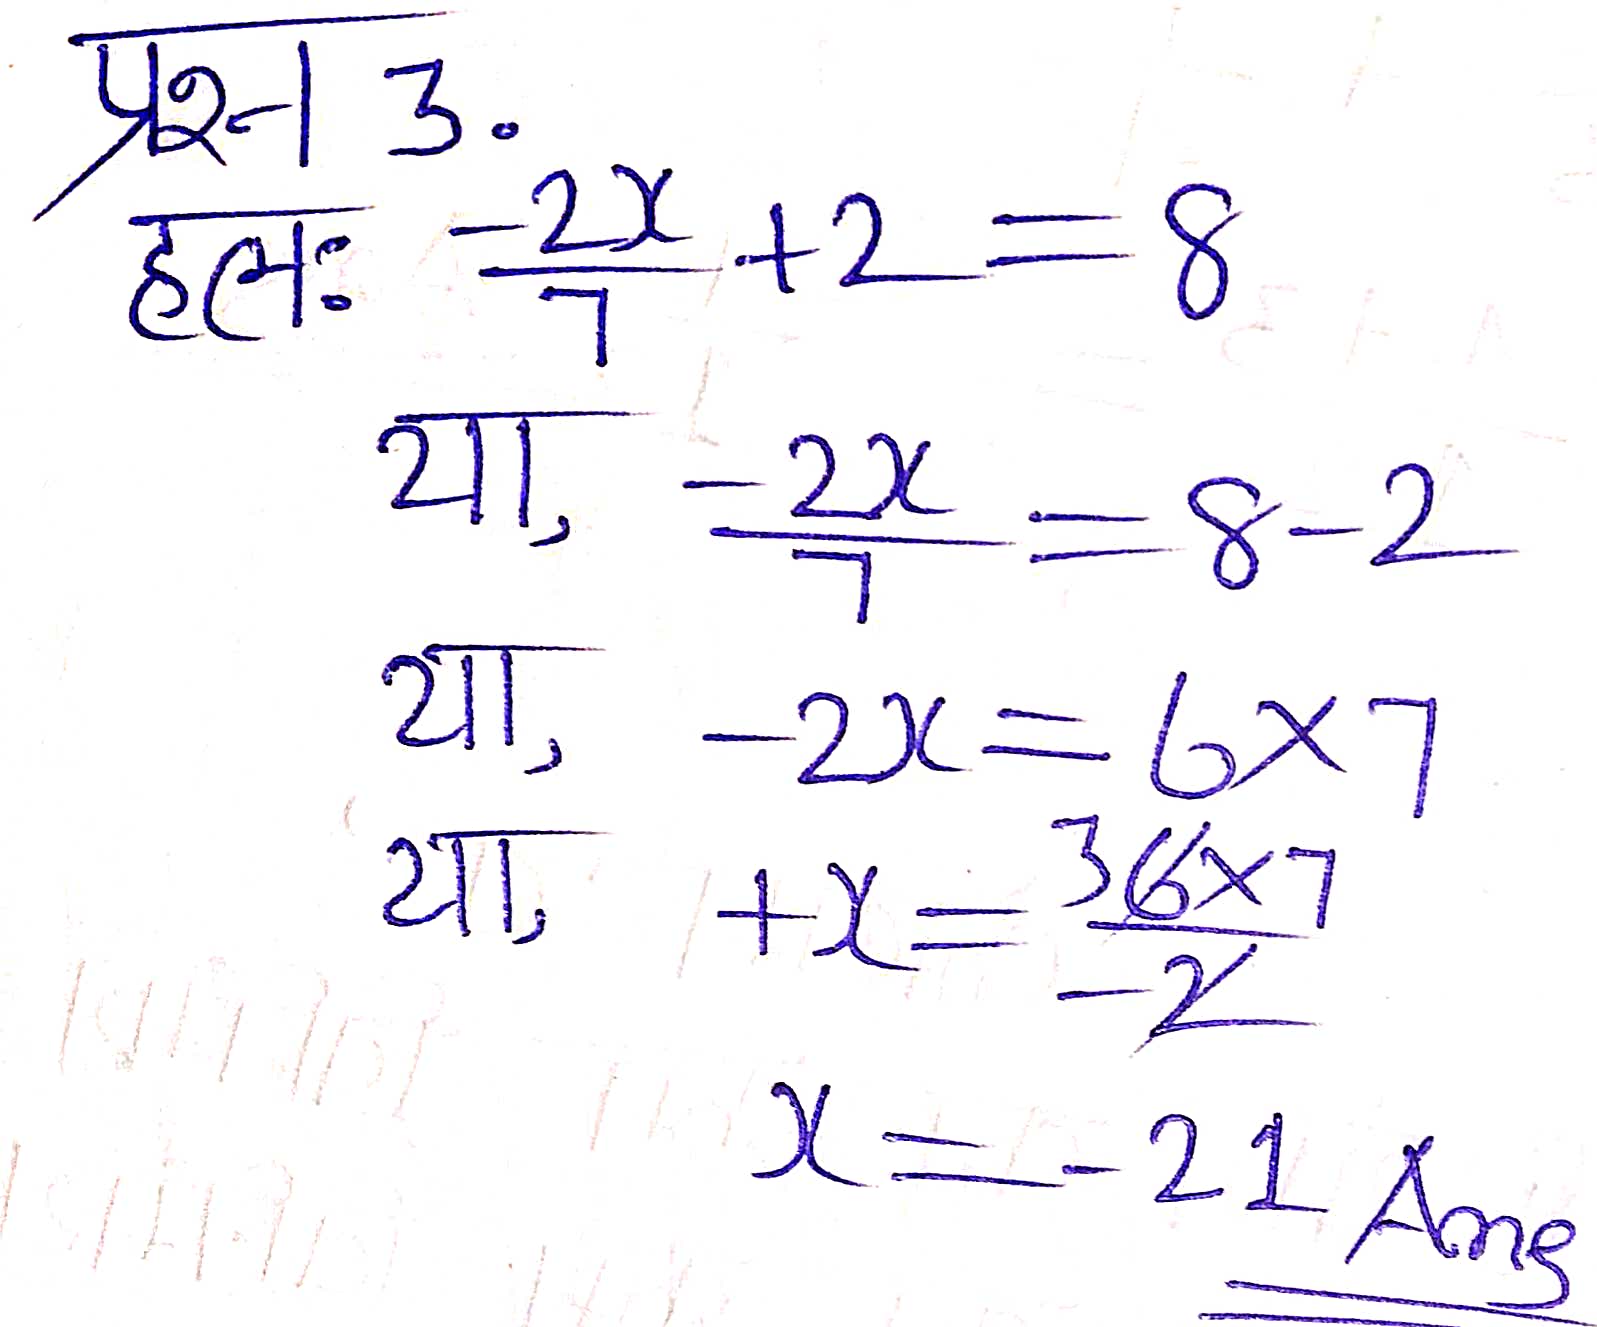 प्रश्न 3.
हल: -2x/7 + 2 = 8
या, -2x/7 = 8 - 2
या, -2x = 6 × 7
या, +x = 3 6 × 7 / -2
x = -21 Ans